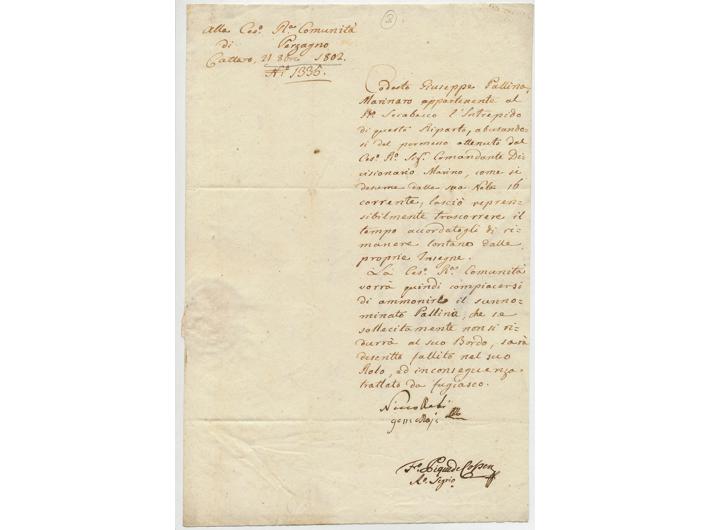 2
Alla Ces.ª R.ª Comunità
di Perzagno
Cattaro, 21 8bre 1802.
N.º 1335.
Codesto Giuseppe Pallina,
Marinaro appartenente al
R.º Sciabecco l'Intrepido
di questo Riparto, abusando-
si del permesso ottenuto dal
Ces.º R.º Sig.
Comandante Di-
visionario Marino, come si
desume dalla sua Nota 16
corrente, lasciò repren-
sibilmente trascorrere il
tempo accordatogli di ri-
manere lontano dalle
proprie Insegne.
La Ces.ª R.ª Comunità
vorrà quindi compiacersi
di ammonire il sunno-
minato Pallina, che se
sollecitamente non si ri-
durrà al suo Bordo, sarà
descritto fallito nel suo
Rolo, ed in conseguenza
trattato da fugiasco.
R.º Segrio